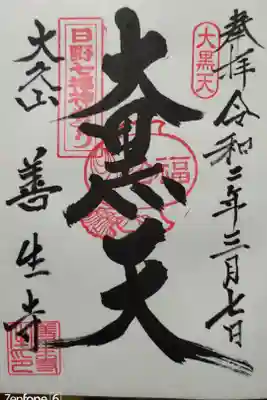 奉拝
大黒天
令和二年三月七日
大黒天
日野七福神めぐり
福
大久山
善生寺
Zenfone 6